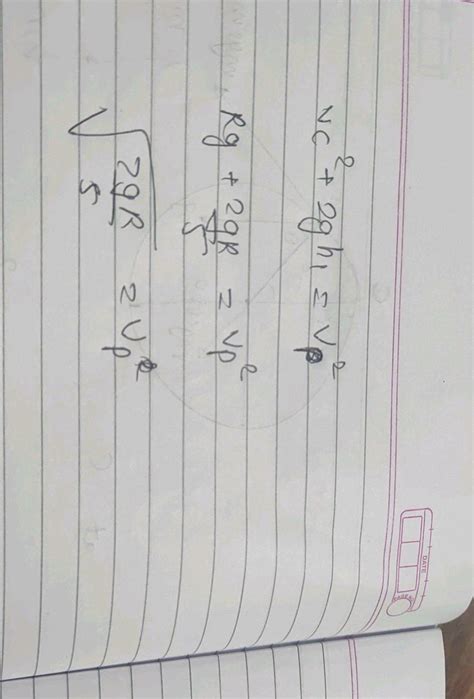 vc² + 2gh₁ = vp²
Rg + 2gR/5 = vp²
√(2gR/5) = vp²
DATE